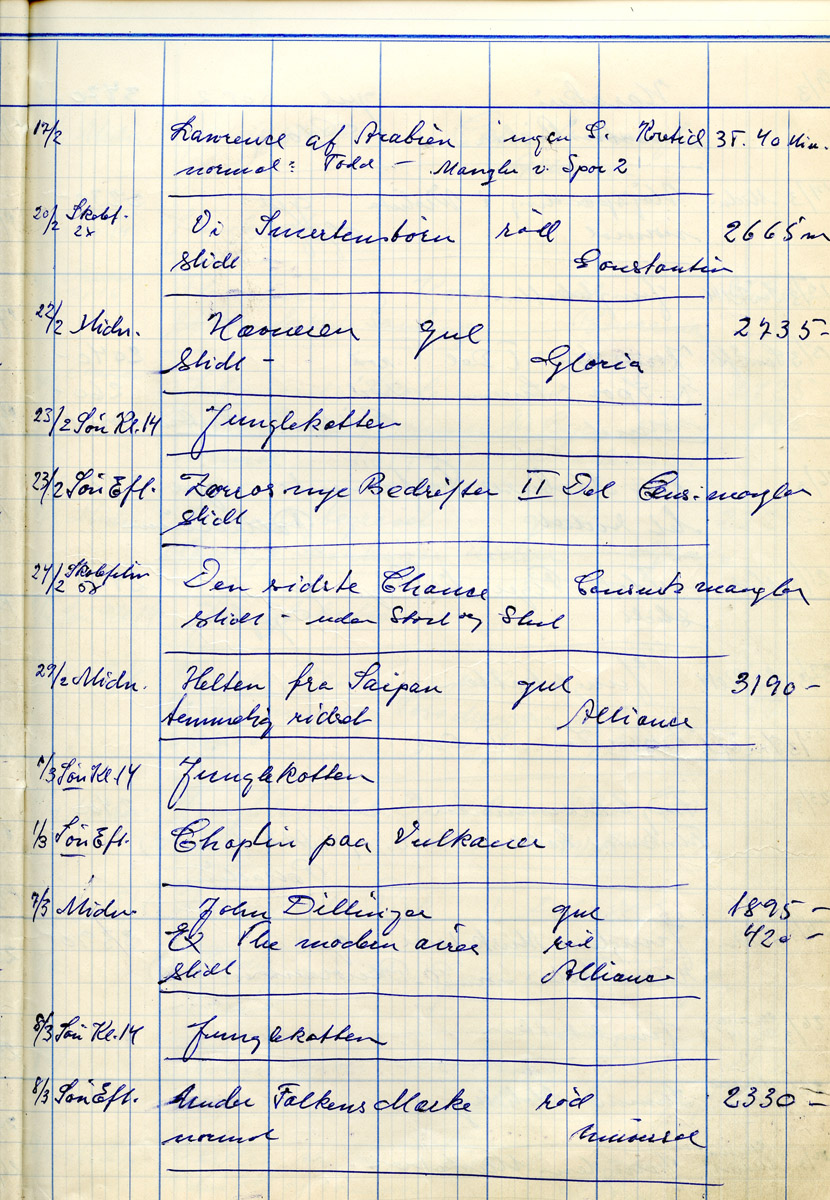 17/2 Lawrence af Arabien ingen S. Kretid 3T. 40 Min.
normal: Todd - Mangler v. Spor 2
20/2 Skolef. 2x Vi Smertensbörn röd 2665 m
slidt Constantin
22/2 Midn. Hævneren gul 2735-
Slidt - Gloria
23/2 Søn Kl. 14 Junglekatten
23/2 Søn Eft. Zorros nye Bedrifter II Del Cens. mangler
slidt
24/2 Skolefilm 5x Den sidste Chance Censurk mangler
slidt - uden Start og Slut
29/2 Midn. Helten fra Saipan gul 3190-
temmelig ridset Alliance
1/3 Søn Kl. 14 Junglekatten
1/3 Søn Eft. Chaplin paa Vulkaner
7/3 Midn John Dillinger gul 1895-
The modern röd 420-
slidt Alliance
8/3 Søn Kl. 14 Junglekatten
8/3 Søn Eft. Under Falkens Mærke röd 2330-
normal Universal